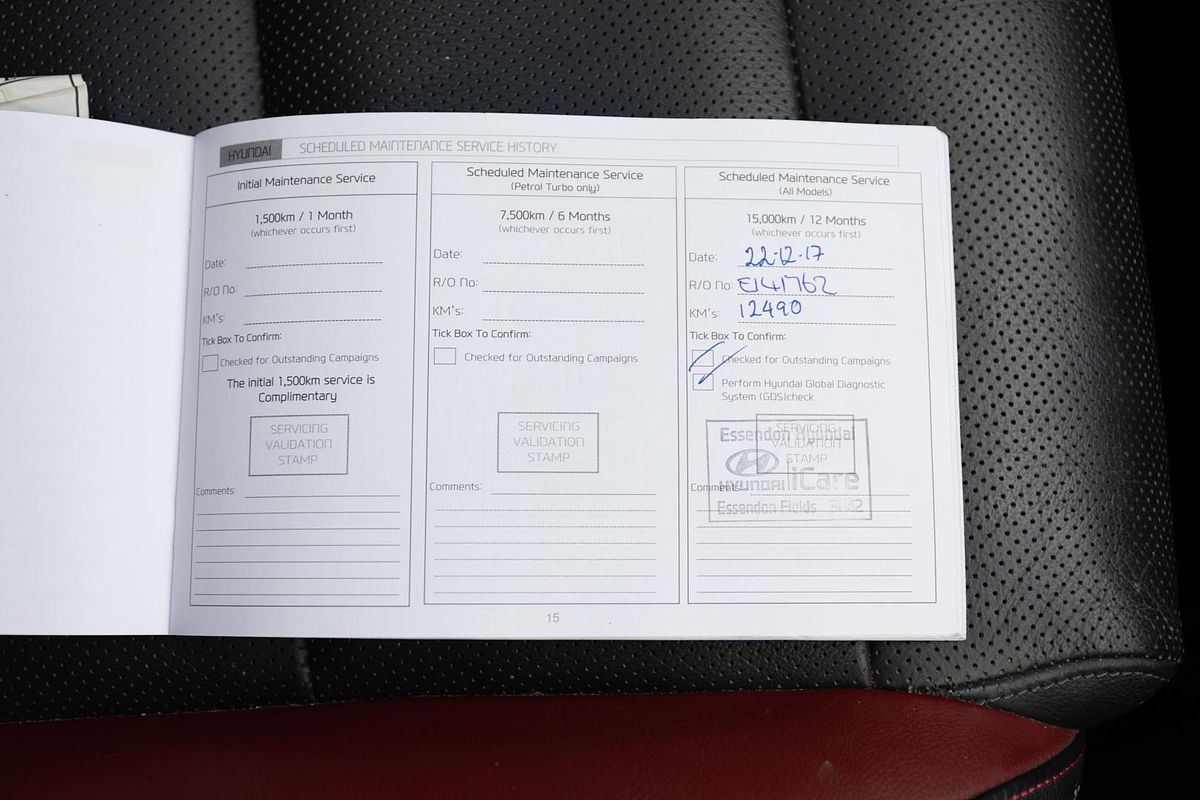 HYUNDAI SCHEDULED MAINTENANCE SERVICE HISTORY
Initial Maintenance Service
1,500km / 1 Month
(whichever occurs first)
Date:
R/O No:
KM's:
Tick Box To Confirm:
Checked for Outstanding Campaigns
The initial 1,500km service is
Complimentary
SERVICING
VALIDATION
STAMP
Comments:
Scheduled Maintenance Service
(Petrol Turbo only)
7,500km / 6 Months
(whichever occurs first)
Date:
R/O No:
KM's:
Tick Box To Confirm:
Checked for Outstanding Campaigns
SERVICING
VALIDATION
STAMP
Comments:
Scheduled Maintenance Service
(All Models)
15,000km / 12 Months
(whichever occurs first)
Date: 22.12.17
R/O No: E141762
KM's: 12490
Tick Box To Confirm:
Checked for Outstanding Campaigns
Perform Hyundai Global Diagnostic
System (GDS)check
SERVICING
VALIDATION
STAMP
Essendon Hyundai
HYUNDAI iCare
Essendon Fields 3042
Comments:
15